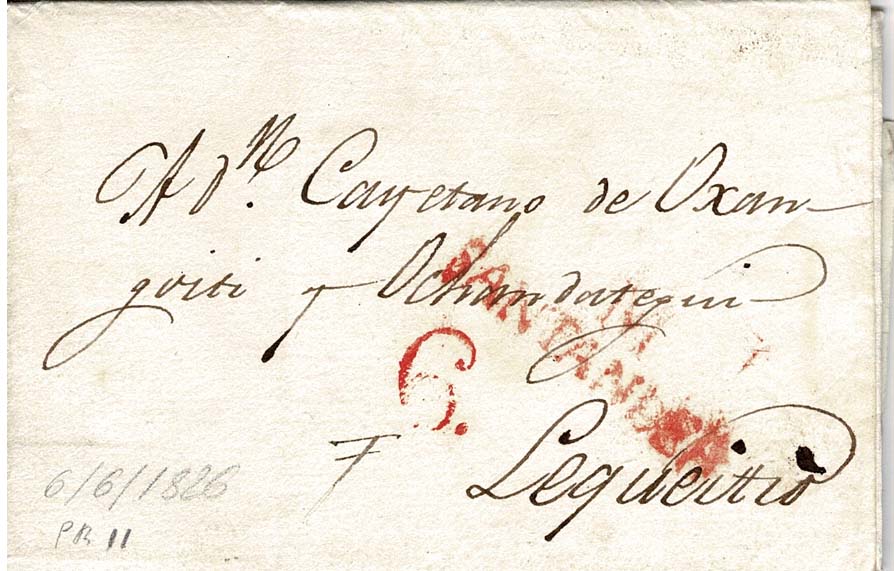 A dn. Cayetano de Oxan-
goiti y Ochandategui
SANTANDER
6.
Lequeittio
6/6/1826
PR 11